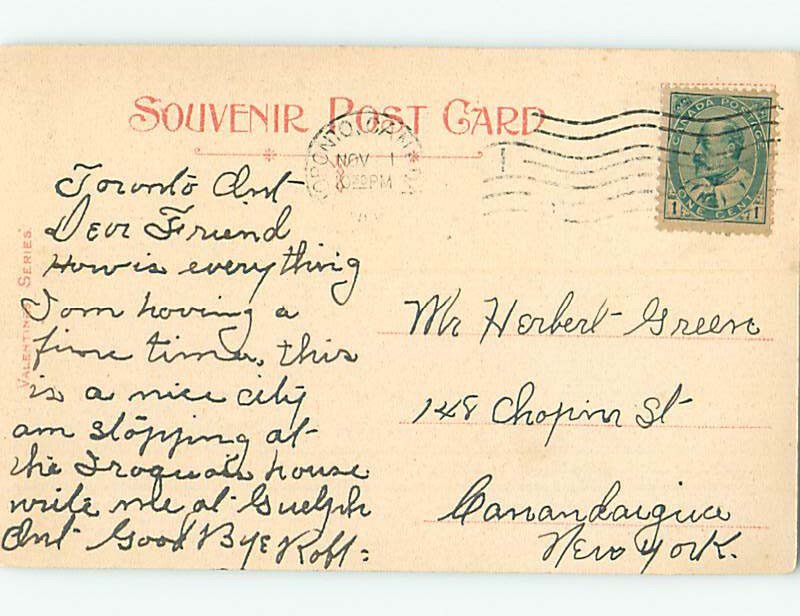 SOUVENIR POST CARD
TORONTO, CANADA
NOV 1
10 30 PM
CANADA POSTAGE
ONE CENT
1 1
VALENTINE SERIES.
Toronto Ont
Dear Friend
How is everything
I am having a
fine time, this
is a nice city
am stopping at
the Iroquois house
write me at Guelph
Ont Good Bye Robt:
Mr Herbert Green
148 Chapin St
Canandaigua
New York.